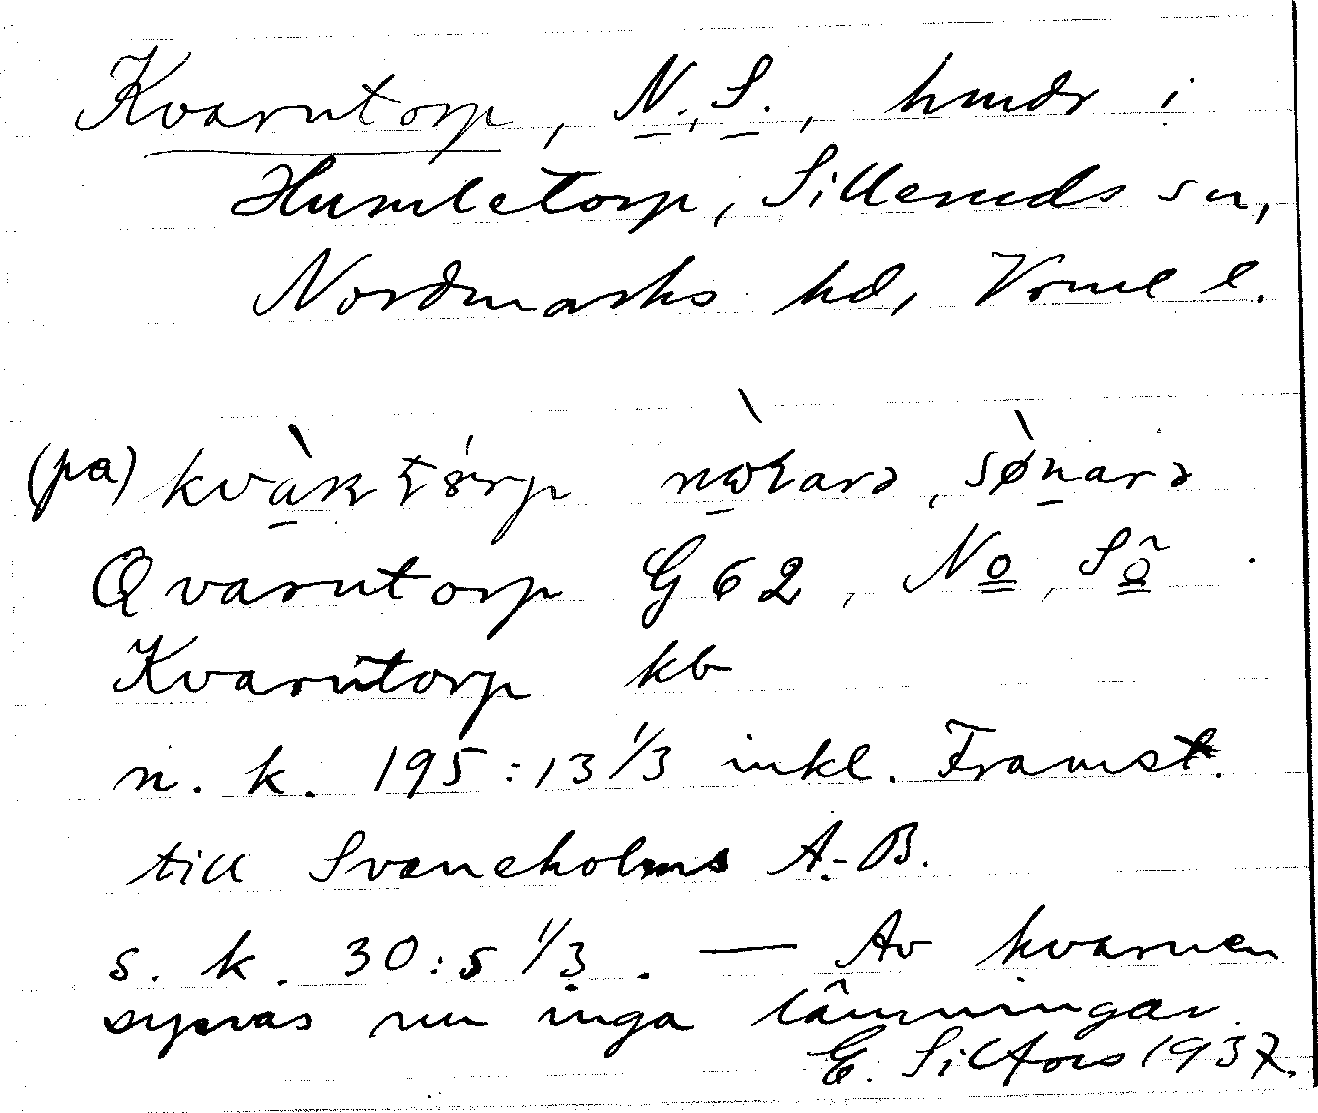 Kvarntorp, N., S., hmdr i
Humletorp, Silleruds sn,
Nordmarks hd, Vrml l.
(pa)
Qvarntorp G 62, No, Sö
Kvarntorp kb
n. k. 195:13 1/3 inkl. Framst.
till Svaneholms A.-B.
s. k. 30:5 1/3. — Av kvarnen
synas nu inga lämningar.
E. Silfors 1937.